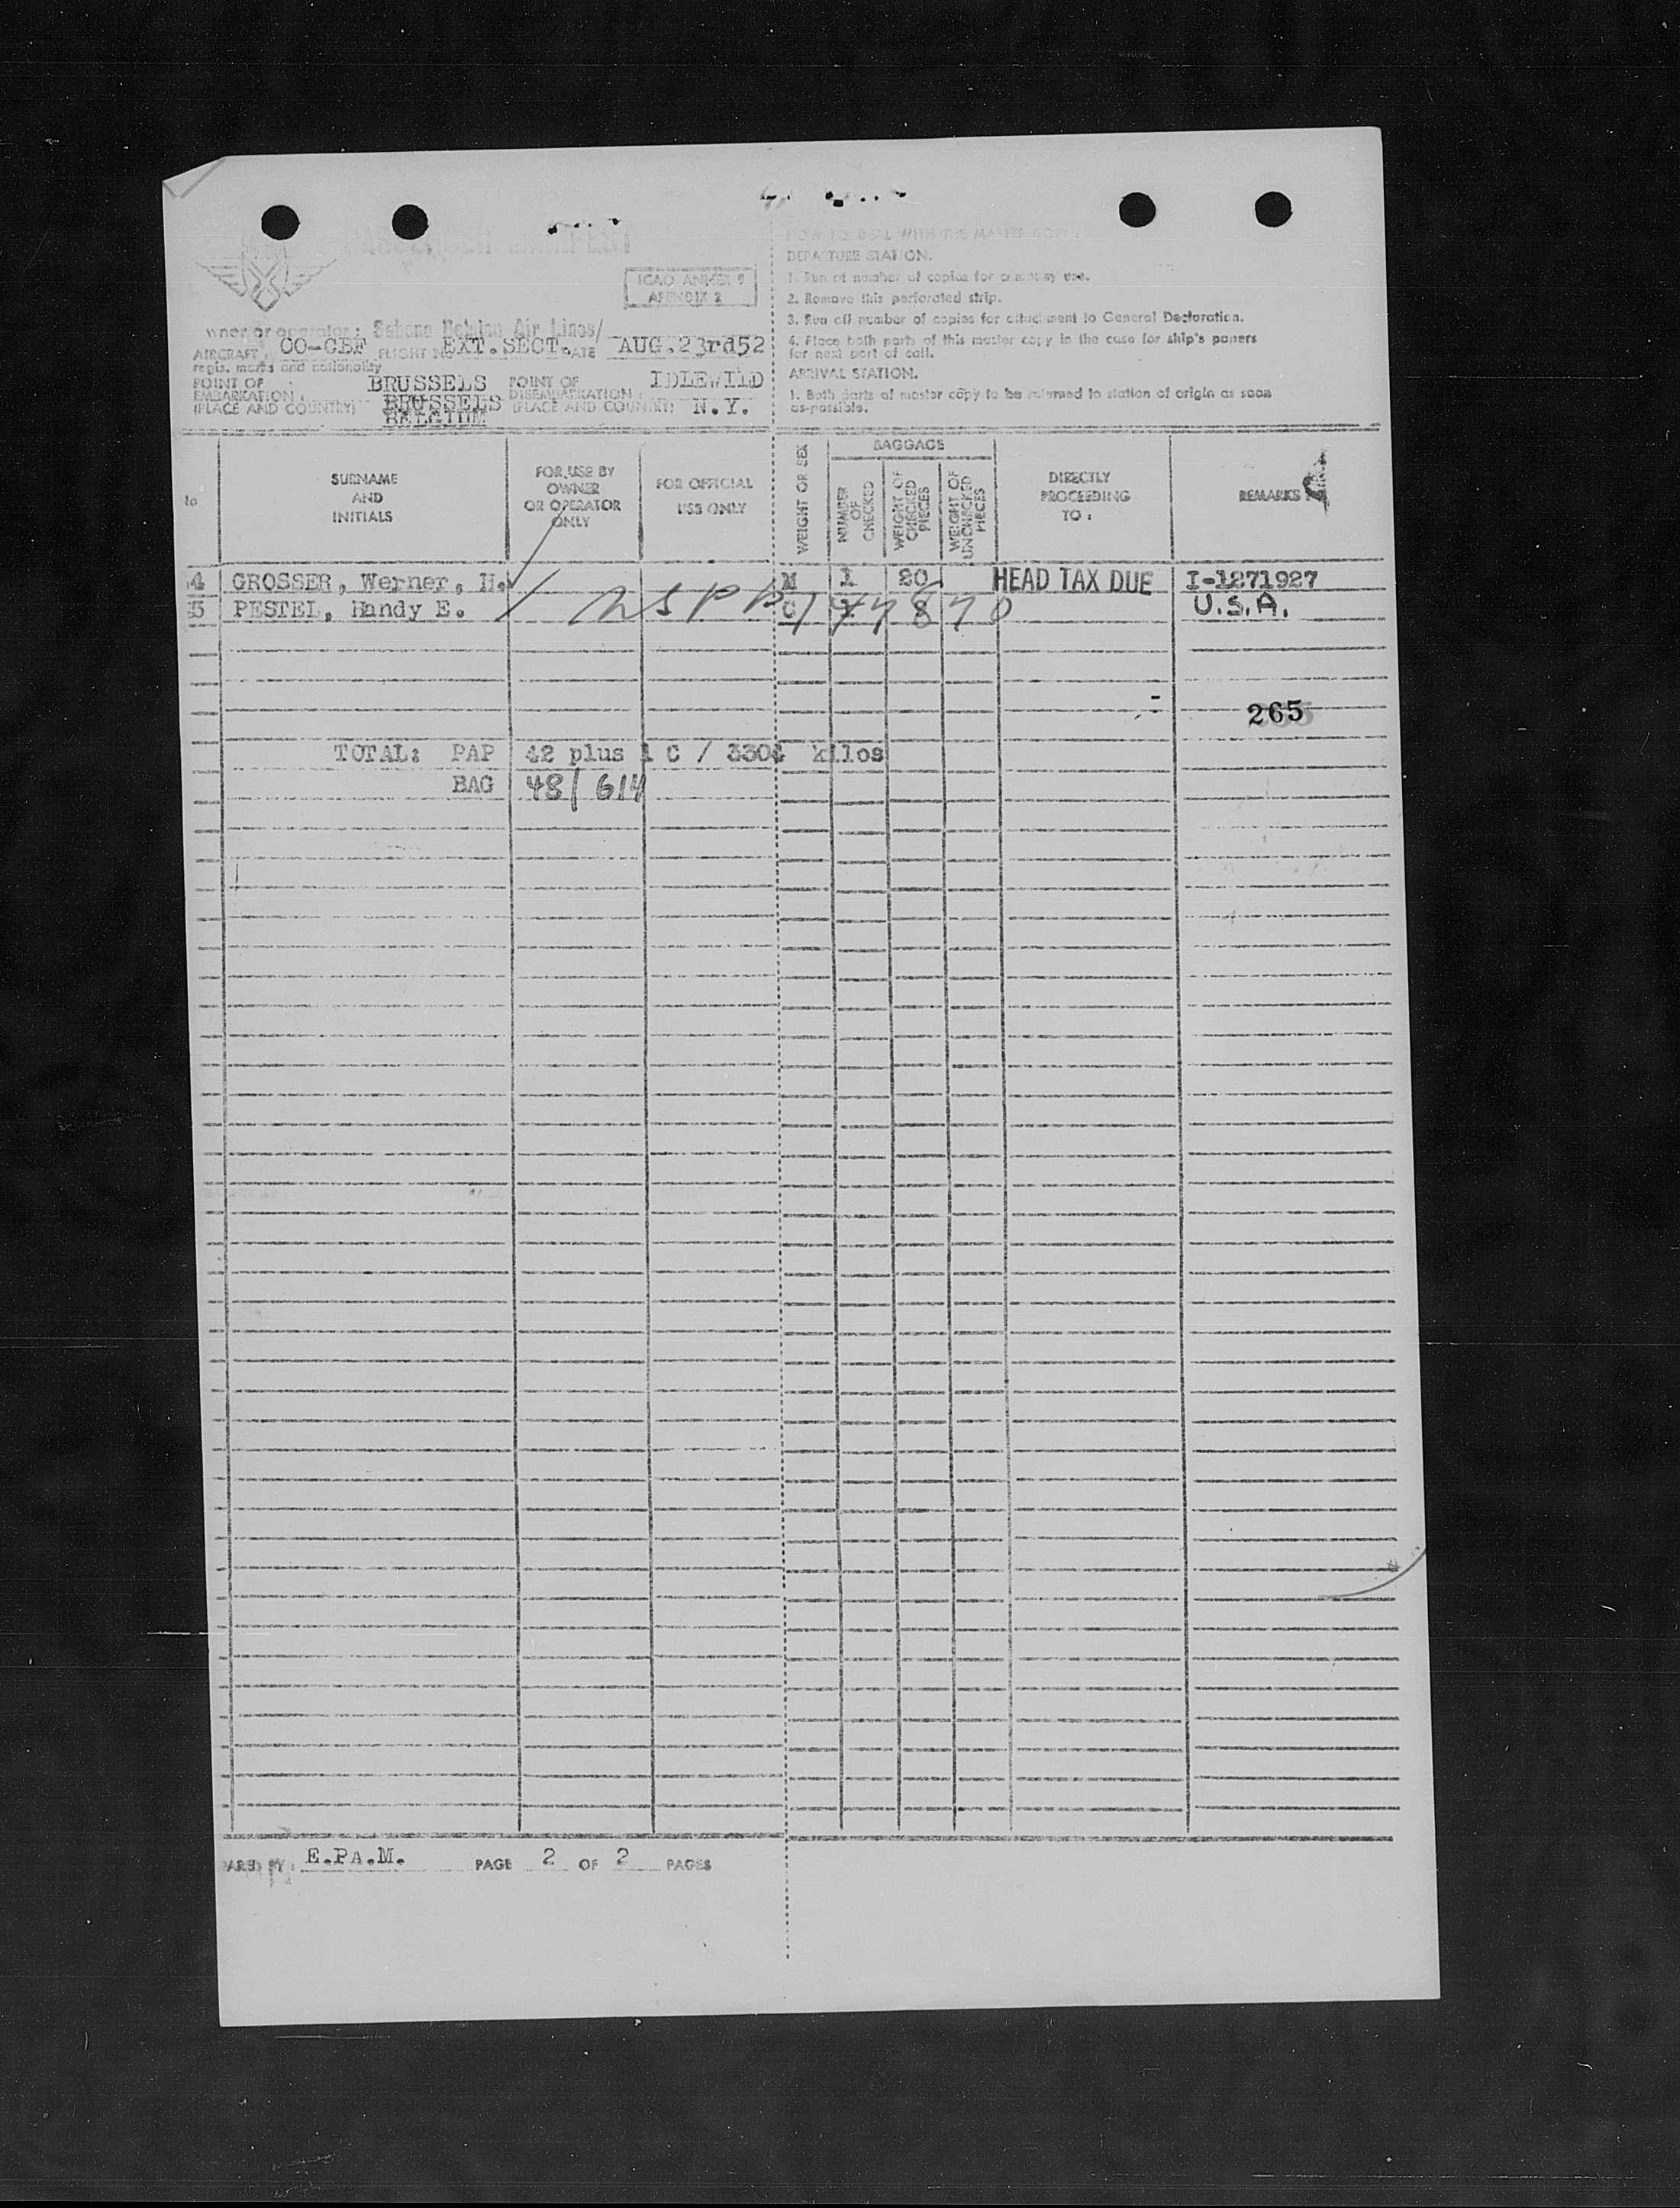 PASSENGER MANIFEST
ICAO ANNEX 9
APENDIX 2
wner or operator: Sabena Belgian Air Lines/
AIRCRAFT: OO-CBF FLIGHT N EXT.SECT. DATE AUG.23rd52
regis. marks and nationality
POINT OF EMBARKATION: (PLACE AND COUNTRY) BRUSSELS
BRUSSELS
BELGIUM
POINT OF DISEMBARKATION: (PLACE AND COUNTRY) IDLEWILD
N.Y.
HOW TO DEAL WITH THE MASTER COPY:
DEPARTURE STATION.
1. Run of number of copies for company use.
2. Remove this perforated strip.
3. Run off number of copies for attachment to General Declaration.
4. Place both parts of this master copy in the case for ship's papers
for next port of call.
ARRIVAL STATION.
1. Both parts of master copy to be returned to station of origin as soon
as-possible.
SURNAME AND INITIALS
FOR USE BY OWNER OR OPERATOR ONLY
FOR OFFICIAL USE ONLY
WEIGHT OR SEX
BAGGAGE
NUMBER OF CHECKED
WEIGHT OF CHECKED PIECES
WEIGHT OF UNCHECKED PIECES
DIRECTLY PROCEEDING TO:
REMARKS
4 GROSSER, Werner, H. M 1 20 HEAD TAX DUE I-1271927
5 PESTEL, Handy E. C U.S.A.
265
TOTAL: PAP 42 plus 1 C / 3304 kilos
BAG 48/ 614
PARED BY: E.PA.M. PAGE 2 OF 2 PAGES